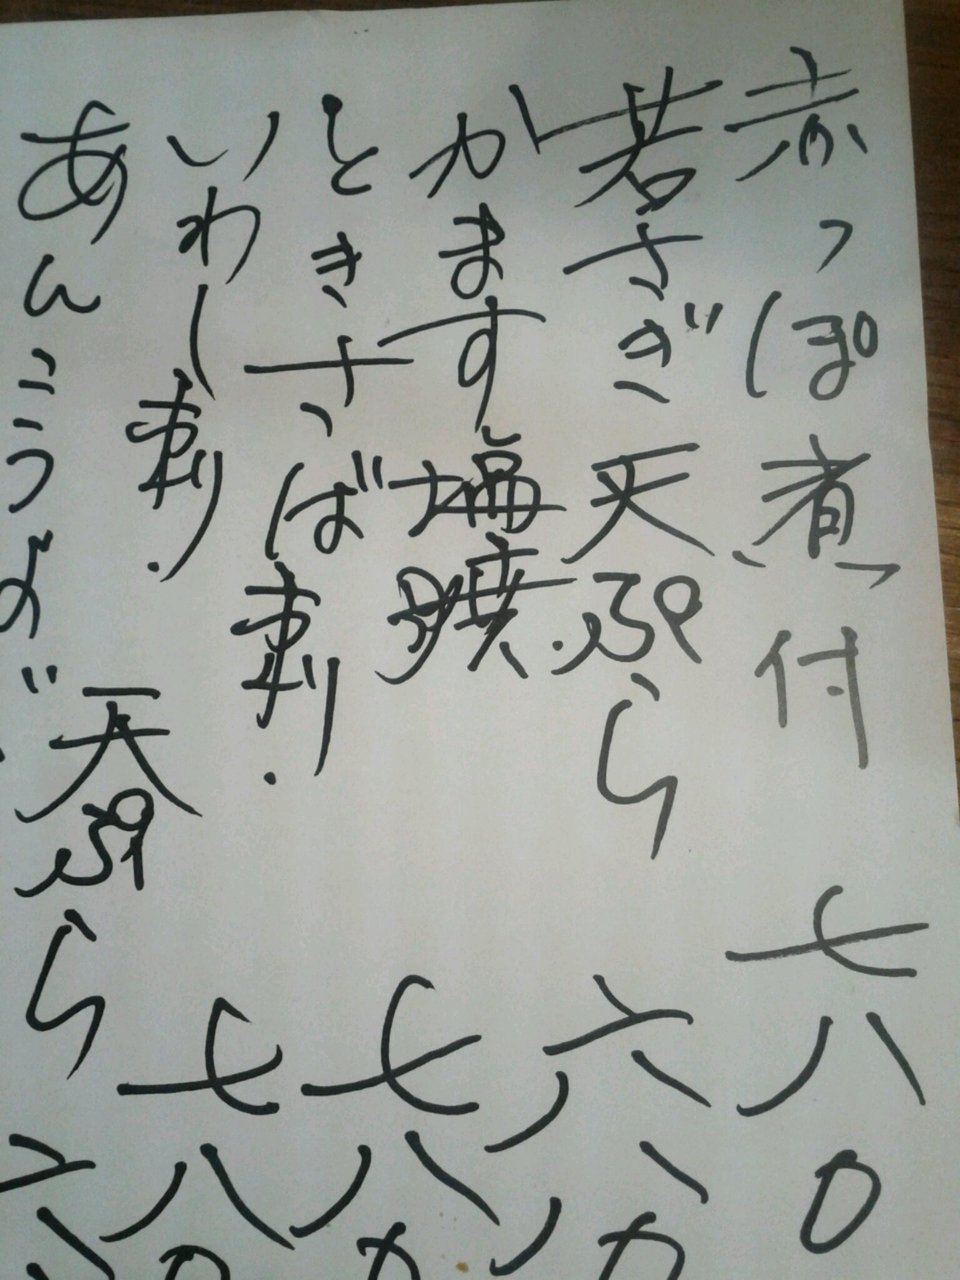 赤っぽ煮付 七八0
若さぎ天ぷら 六八0
かます塩焼 七八0
ときさば刺 七八0
いわし刺
あんこうよ 天ぷら 六